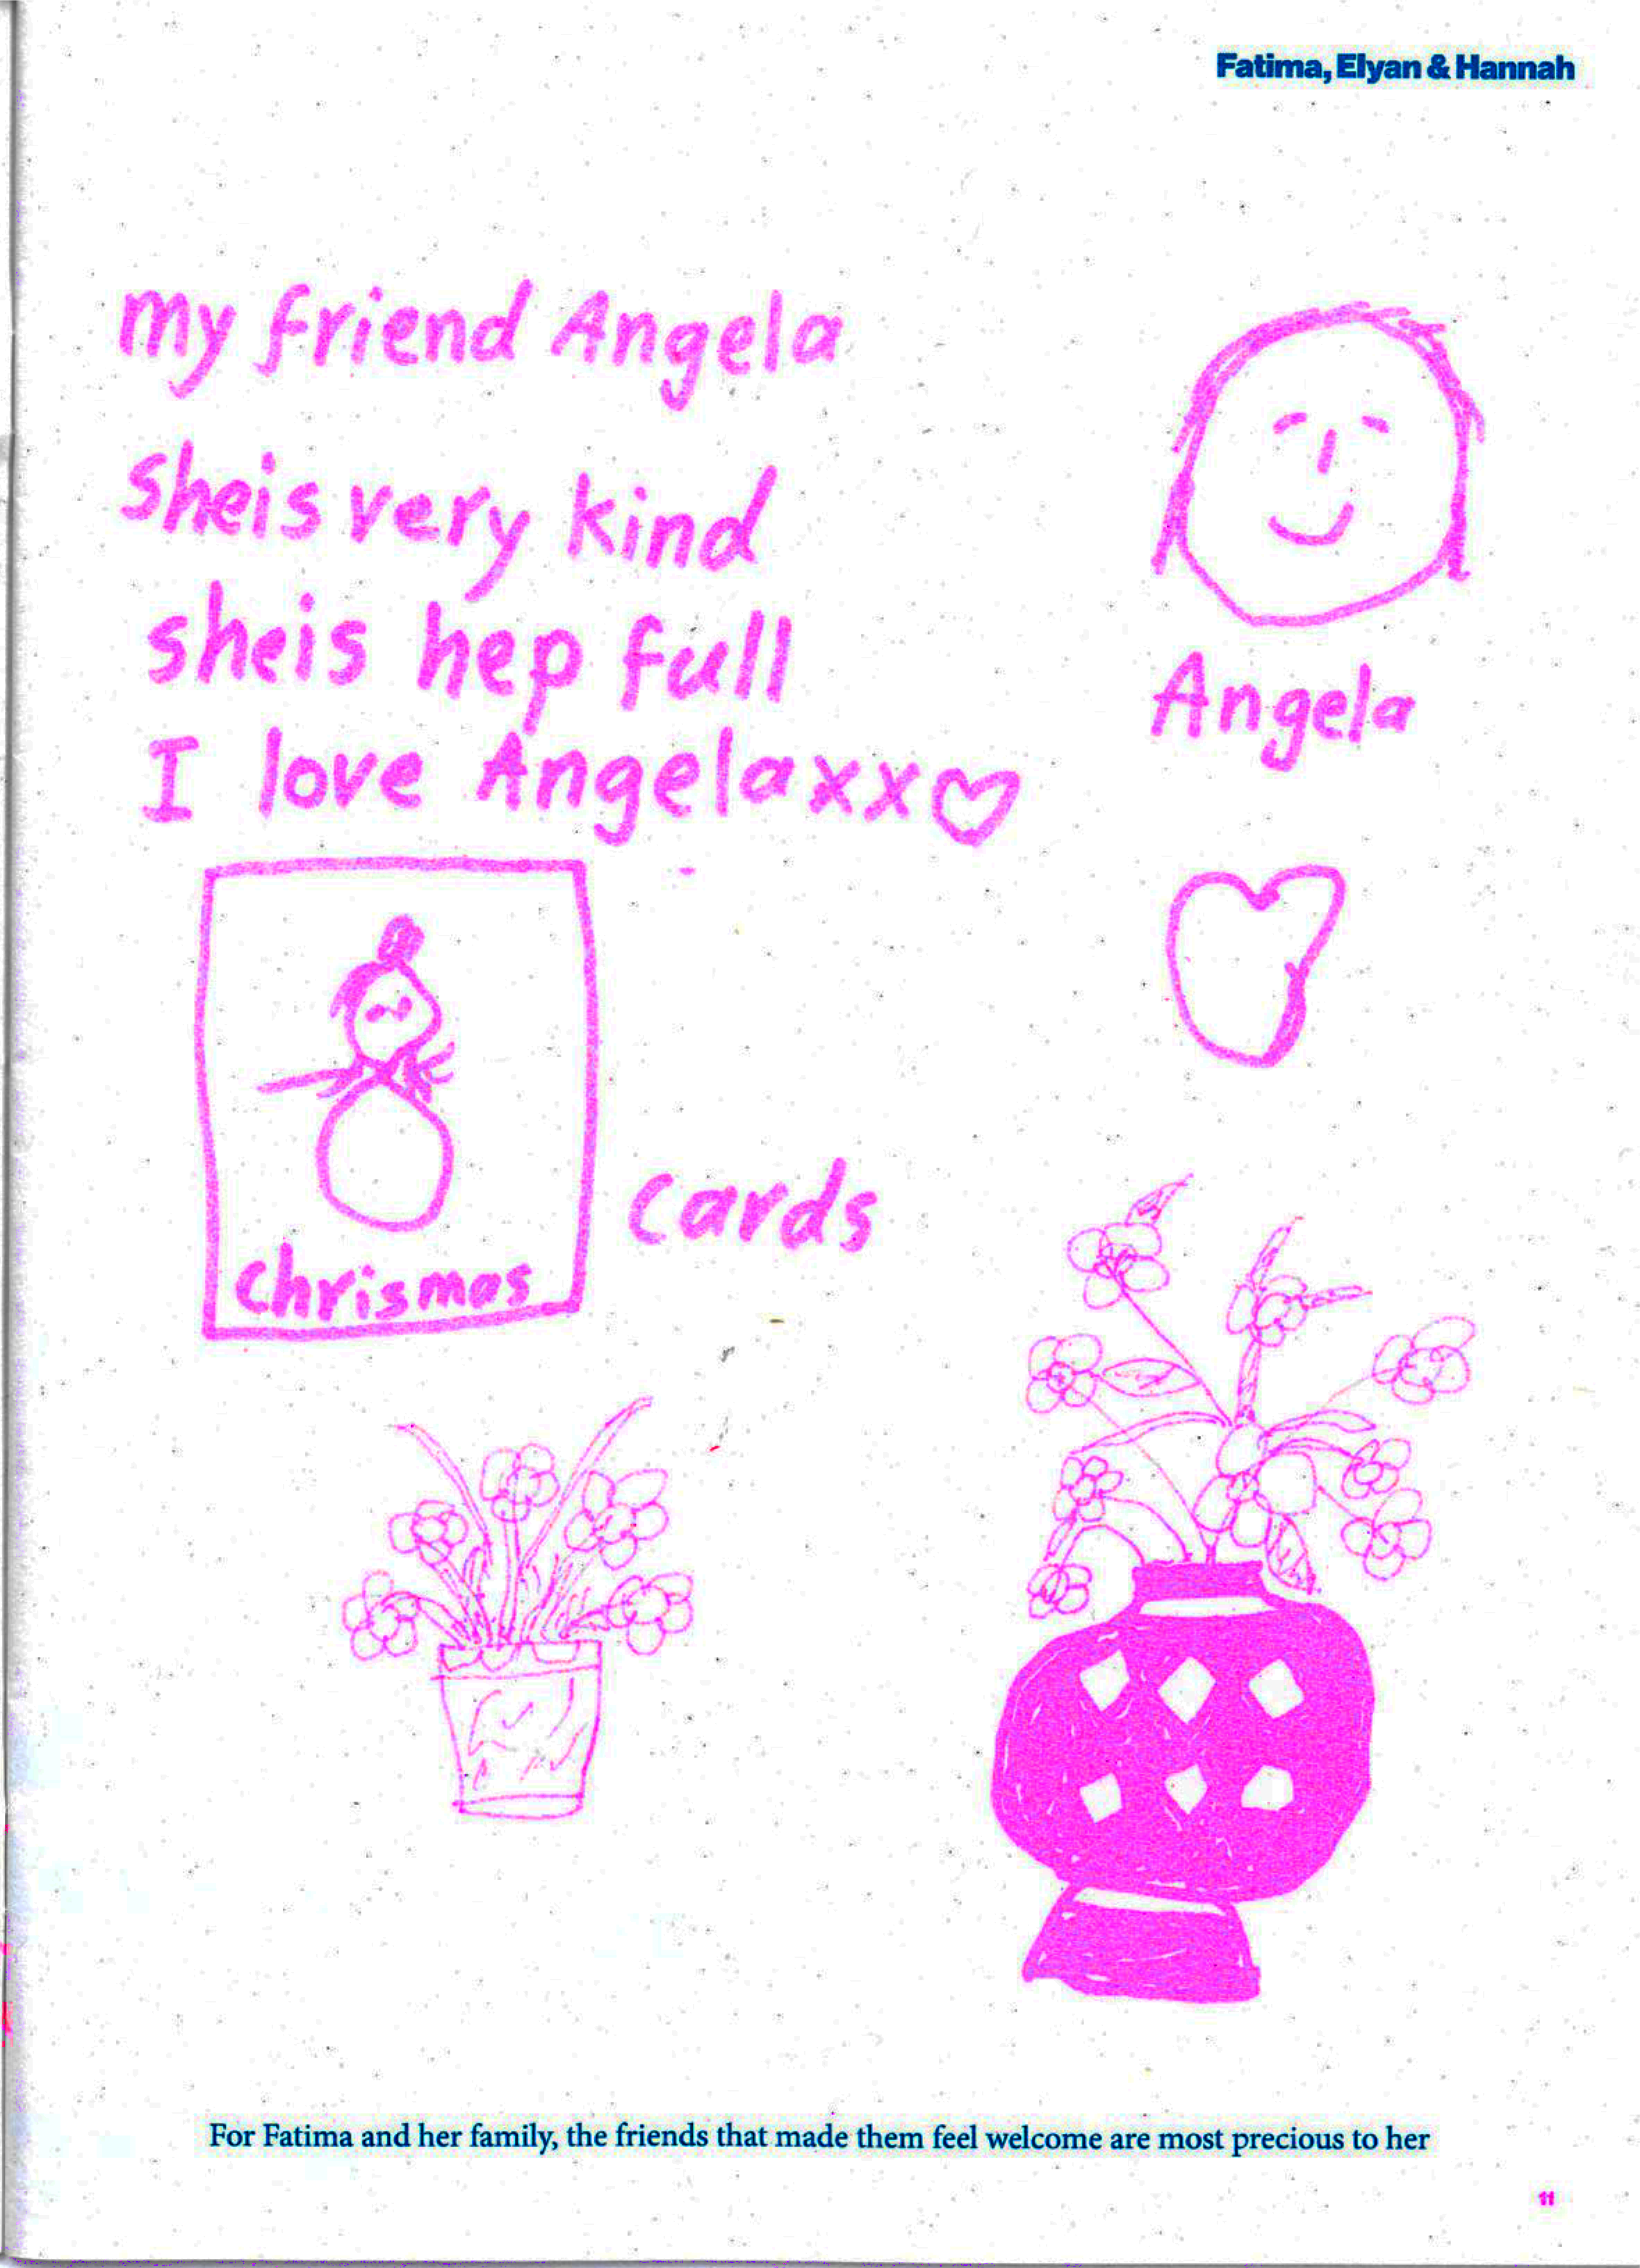 Fatima, Elyan & Hannah
my friend Angela
sheis very kind
sheis hep full
I love Angela xx
Angela
cards
chrismas
For Fatima and her family, the friends that made them feel welcome are most precious to her
11